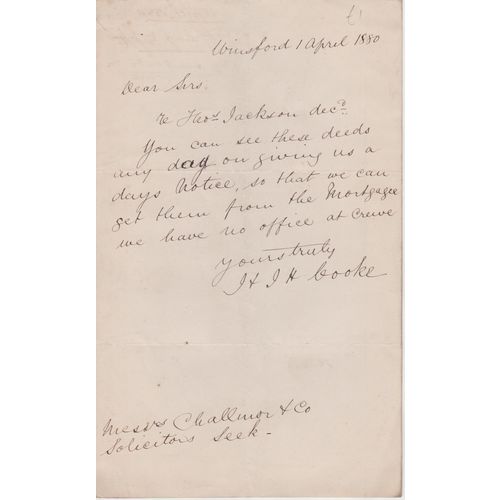 £1
Winsford 1 April 1880
Dear Sirs.
re Thos Jackson decd.
You can see these deeds
any day on giving us a
days Notice, so that we can
get them from the Mortgagee
we have no office at Crewe
yours truly
J H Cooke
Messrs Challinor & Co
Solicitors Leek -